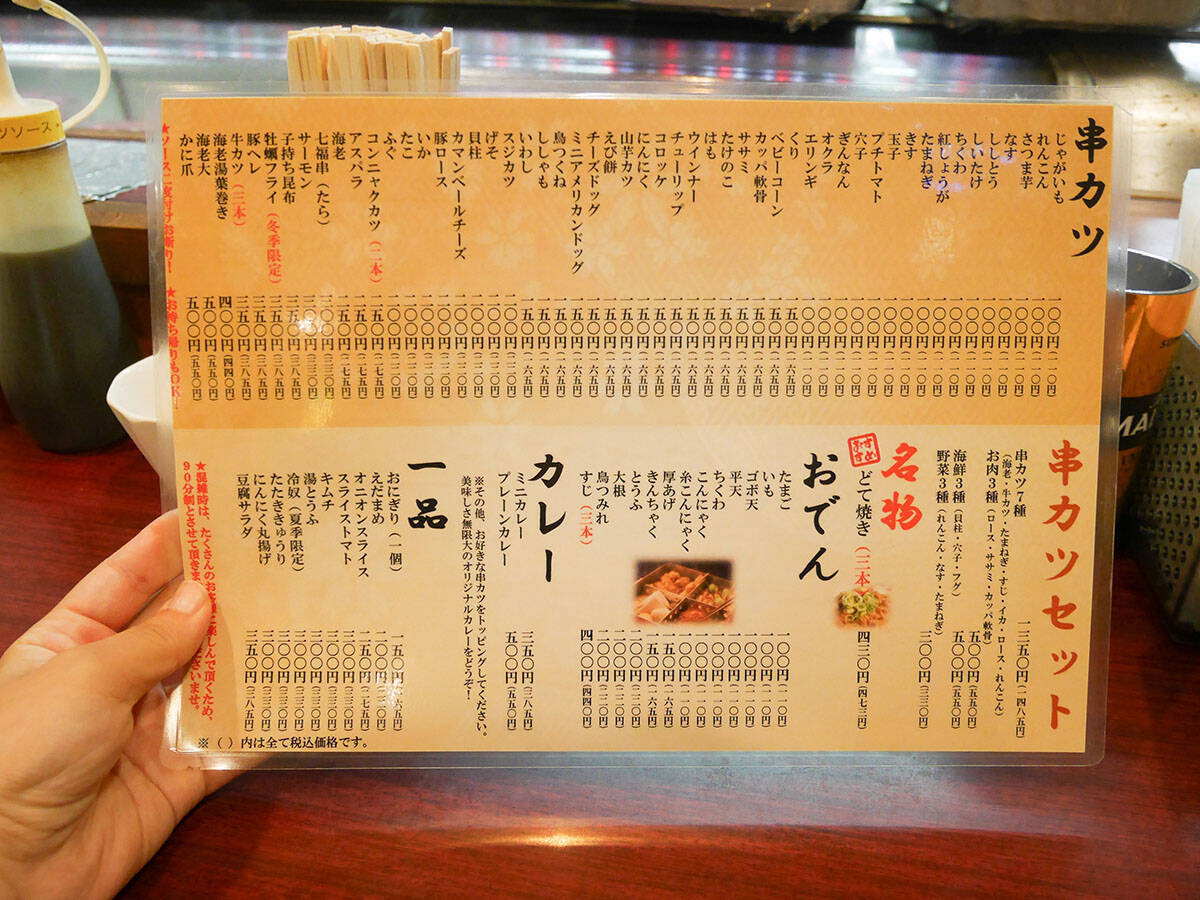 串カツ
じゃがいも 一〇〇円（一一〇円）
れんこん 一〇〇円（一一〇円）
さつま芋 一〇〇円（一一〇円）
なす 一〇〇円（一一〇円）
ししとう 一〇〇円（一一〇円）
しいたけ 一〇〇円（一一〇円）
ちくわ 一〇〇円（一一〇円）
紅しょうが 一〇〇円（一一〇円）
たまねぎ 一〇〇円（一一〇円）
きす 一〇〇円（一一〇円）
玉子 一〇〇円（一一〇円）
プチトマト 一〇〇円（一一〇円）
穴子 一〇〇円（一一〇円）
ぎんなん 一〇〇円（一一〇円）
オクラ 一〇〇円（一一〇円）
エリンギ 一〇〇円（一一〇円）
くり 一五〇円（一六五円）
ベビーコーン 一五〇円（一六五円）
カッパ軟骨 一五〇円（一六五円）
ササミ 一五〇円（一六五円）
たけのこ 一五〇円（一六五円）
はも 一五〇円（一六五円）
ウインナー 一五〇円（一六五円）
チューリップ 一五〇円（一六五円）
コロッケ 一五〇円（一六五円）
にんにく 一五〇円（一六五円）
山芋カツ 一五〇円（一六五円）
えび餅 一五〇円（一六五円）
チーズドッグ 一五〇円（一六五円）
ミニアメリカンドッグ 一五〇円（一六五円）
鳥つくね 一五〇円（一六五円）
ししゃも 一五〇円（一六五円）
いわし 一五〇円（一六五円）
スジカツ 二〇〇円（二二〇円）
げそ 二〇〇円（二二〇円）
貝柱 二〇〇円（二二〇円）
カマンベールチーズ 二〇〇円（二二〇円）
豚ロース 二〇〇円（二二〇円）
いか 二〇〇円（二二〇円）
たこ 二〇〇円（二二〇円）
ふぐ 二〇〇円（二二〇円）
コンニャクカツ（二本） 二五〇円（二七五円）
アスパラ 二五〇円（二七五円）
海老 二五〇円（二七五円）
七福串（たら） 三〇〇円（三三〇円）
サーモン 三〇〇円（三三〇円）
子持ち昆布 三五〇円（三八五円）
牡蠣フライ（冬季限定） 三五〇円（三八五円）
豚ヘレ 三五〇円（三八五円）
牛カツ（三本） 三五〇円（三八五円）
海老湯葉巻き 四〇〇円（四四〇円）
海老大 五〇〇円（五五〇円）
かに爪 五〇〇円（五五〇円）
★ソース二度付けお断り！ ★お持ち帰りもOK！
串カツセット
串カツ7種 一三五〇円（一四八五円）
（海老・牛カツ・たまねぎ・すじ・イカ・ロース・れんこん）
お肉3種（ロース・ササミ・カッパ軟骨） 五〇〇円（五五〇円）
海鮮3種（貝柱・穴子・フグ） 五〇〇円（五五〇円）
野菜3種（れんこん・なす・たまねぎ） 三〇〇円（三三〇円）
名物
おすすめ
どて焼き（三本） 四三〇円（四七三円）
おでん
たまご 一〇〇円（一一〇円）
いも 一〇〇円（一一〇円）
ゴボ天 一〇〇円（一一〇円）
平天 一〇〇円（一一〇円）
ちくわ 一〇〇円（一一〇円）
こんにゃく 一〇〇円（一一〇円）
糸こんにゃく 一〇〇円（一一〇円）
厚あげ 一五〇円（一六五円）
きんちゃく 一五〇円（一六五円）
とうふ 二〇〇円（二二〇円）
大根 二〇〇円（二二〇円）
鳥つみれ 二〇〇円（二二〇円）
すじ（三本） 四〇〇円（四四〇円）
カレー
ミニカレー 三五〇円（三八五円）
プレーンカレー 五〇〇円（五五〇円）
※その他、お好きな串カツをトッピングしてください。
美味しさ無限大のオリジナルカレーをどうぞ！
一品
おにぎり（一個） 一五〇円（一六五円）
えだまめ 二〇〇円（二二〇円）
オニオンスライス 二五〇円（二七五円）
スライストマト 三〇〇円（三三〇円）
キムチ 三〇〇円（三三〇円）
湯とうふ 三〇〇円（三三〇円）
冷奴（夏季限定） 三〇〇円（三三〇円）
たたききゅうり 三〇〇円（三三〇円）
にんにく丸揚げ 三〇〇円（三三〇円）
豆腐サラダ 三五〇円（三八五円）
★混雑時は、たくさんのお客様に楽しんで頂くため、
90分制とさせて頂きま ございませ。
※（ ）内は全て税込価格です。
ソース